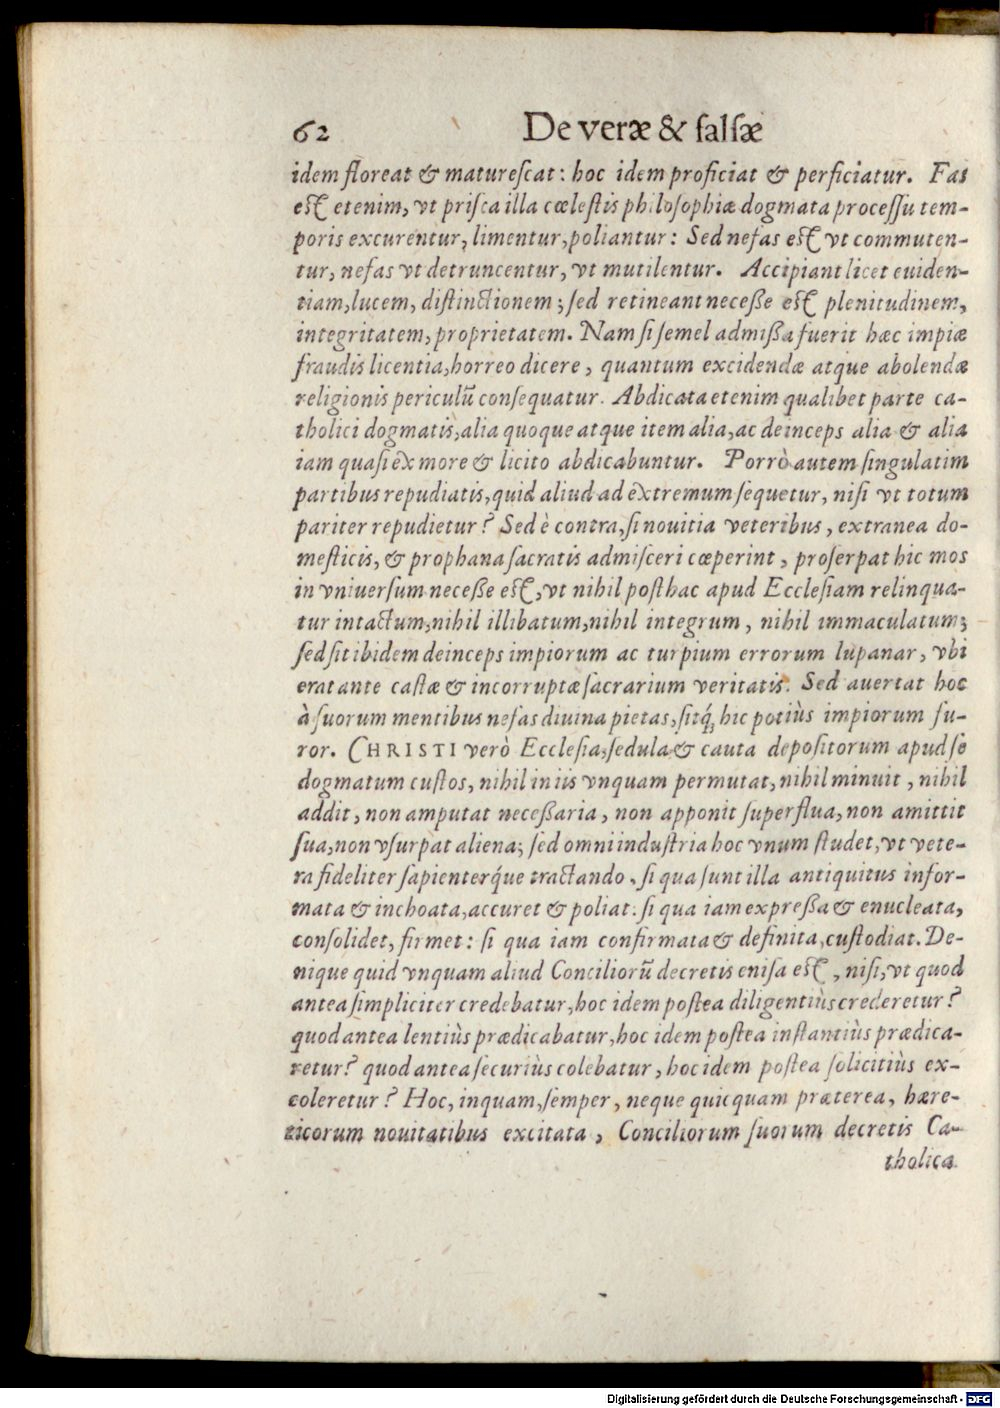 62 De veræ & falsæ
idem floreat & maturescat: hoc idem proficiat & perficiatur. Fas
est etenim, vt prisca illa cœlestis philosophiæ dogmata processu tem-
poris excurentur, limentur, poliantur: Sed nefas est vt commuten-
tur, nefas vt detruncentur, vt mutilentur. Accipiant licet euiden-
tiam, lucem, distinctionem; sed retineant neceße est plenitudinem,
integritatem, proprietatem. Nam si semel admißa fuerit hæc impiæ
fraudis licentia, horreo dicere, quantum excidendæ atque abolendæ
religionis periculũ consequatur. Abdicata etenim qualibet parte ca-
tholici dogmatis, alia quoque atque item alia, ac deinceps alia & alia
iam quasi ex more & licito abdicabuntur. Porrò autem singulatim
partibus repudiatis, quid aliud ad extremum sequetur, nisi vt totum
pariter repudietur? Sed è contra, si nouitia veteribus, extranea do-
mesticis, & prophana sacratis admisceri cœperint, proserpat hic mos
in vniuersum neceße est, vt nihil posthac apud Ecclesiam relinqua-
tur intactum, nihil illibatum, nihil integrum, nihil immaculatum;
sed sit ibidem deinceps impiorum ac turpium errorum lupanar, vbi
erat ante castæ & incorruptæ sacrarium veritatis. Sed auertat hoc
à suorum mentibus nefas diuina pietas, sitq́; hic potiùs impiorum fu-
ror. CHRISTI verò Ecclesia, sedula & cauta depositorum apud se
dogmatum custos, nihil in iis vnquam permutat, nihil minuit, nihil
addit, non amputat neceßaria, non apponit superflua, non amittit
sua, non vsurpat aliena; sed omni industria hoc vnum studet, vt vete-
ra fideliter sapienterq́ue tractando, si qua sunt illa antiquitus infor-
mata & inchoata, accuret & poliat: si qua iam expreßa & enucleata,
consolidet, firmet: si qua iam confirmata & definita, custodiat. De-
nique quid vnquam aliud Conciliorũ decretis enisa est, nisi, vt quod
antea simpliciter credebatur, hoc idem postea diligentiùs crederetur?
quod antea lentiùs prædicabatur, hoc idem postea instantiùs prædica-
retur? quod antea securiùs colebatur, hoc idem postea solicitiùs ex-
coleretur? Hoc, inquam, semper, neque quicquam præterea, hære-
ticorum nouitatibus excitata, Conciliorum suorum decretis Ca-
tholica
Digitalisierung gefördert durch die Deutsche Forschungsgemeinschaft - DFG